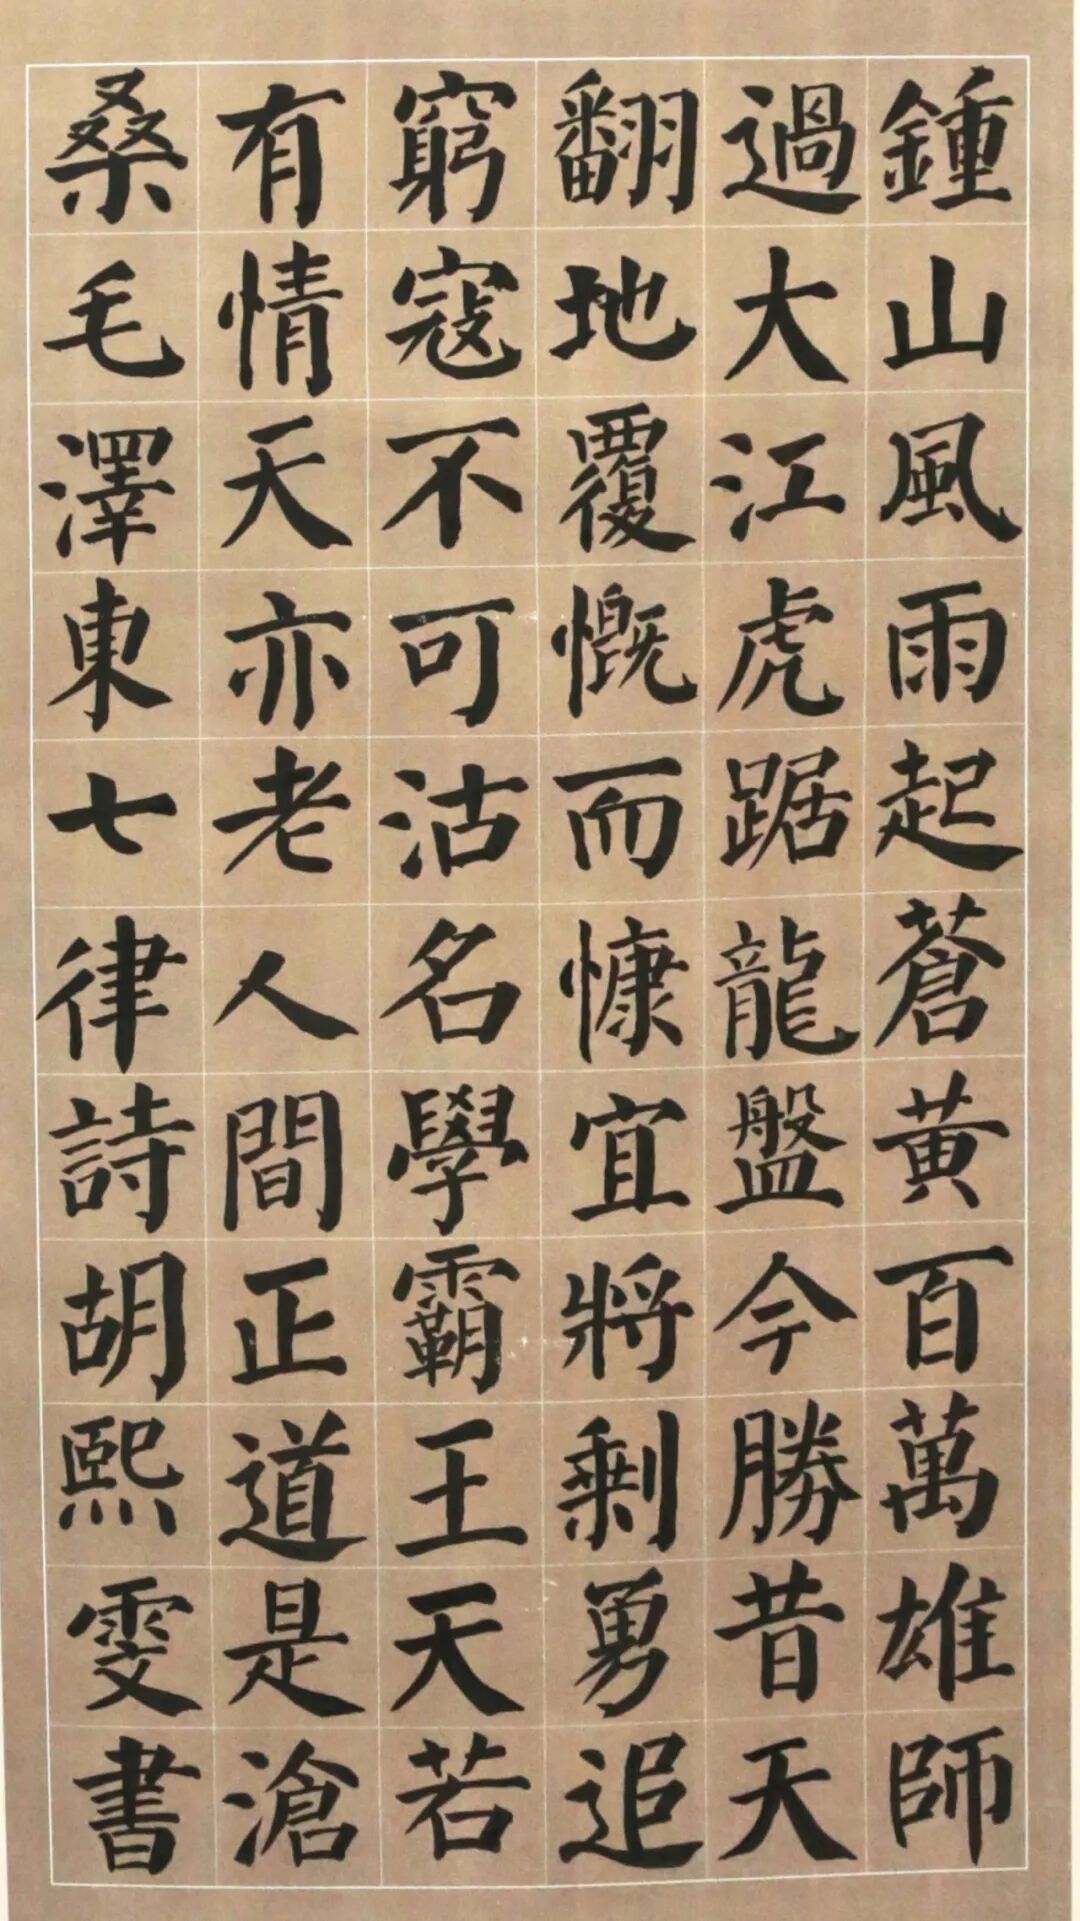 鍾山風雨起蒼黃百萬雄師
過大江虎踞龍盤今勝昔天
翻地覆慨而慷宜將剩勇追
窮寇不可沽名學霸王天若
有情天亦老人間正道是滄
桑毛澤東七律詩胡熙雯書